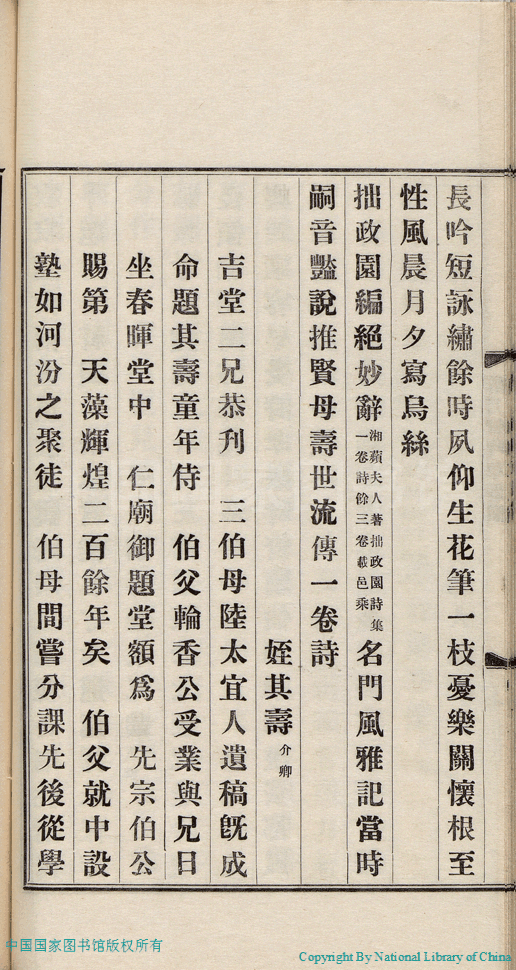 長吟短詠繡餘時夙仰生花筆一枝憂樂關懷根至
性風晨月夕寫烏絲
拙政園編絕妙辭湘蘋夫人著拙政園詩集一卷詩餘三卷載邑乘名門風雅記當時
嗣音豔說推賢母壽世流傳一卷詩
姪其壽介卿
吉堂二兄恭刋 三伯母陸太宜人遺稿旣成
命題其壽童年侍 伯父輪香公受業與兄日
坐春暉堂中 仁廟御題堂額爲 先宗伯公
賜第 天藻輝煌二百餘年矣 伯父就中設
塾如河汾之聚徒 伯母間嘗分課先後從學
中国国家图书馆版权所有
Copyright By National Library of China